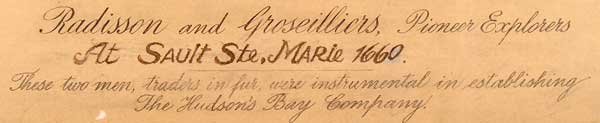 Radisson and Groseilliers, Pioneer Explorers
At SAULT Ste, MARIE 1660.
These two men, traders in fur, were instrumental in establishing
The Hudson's Bay Company.